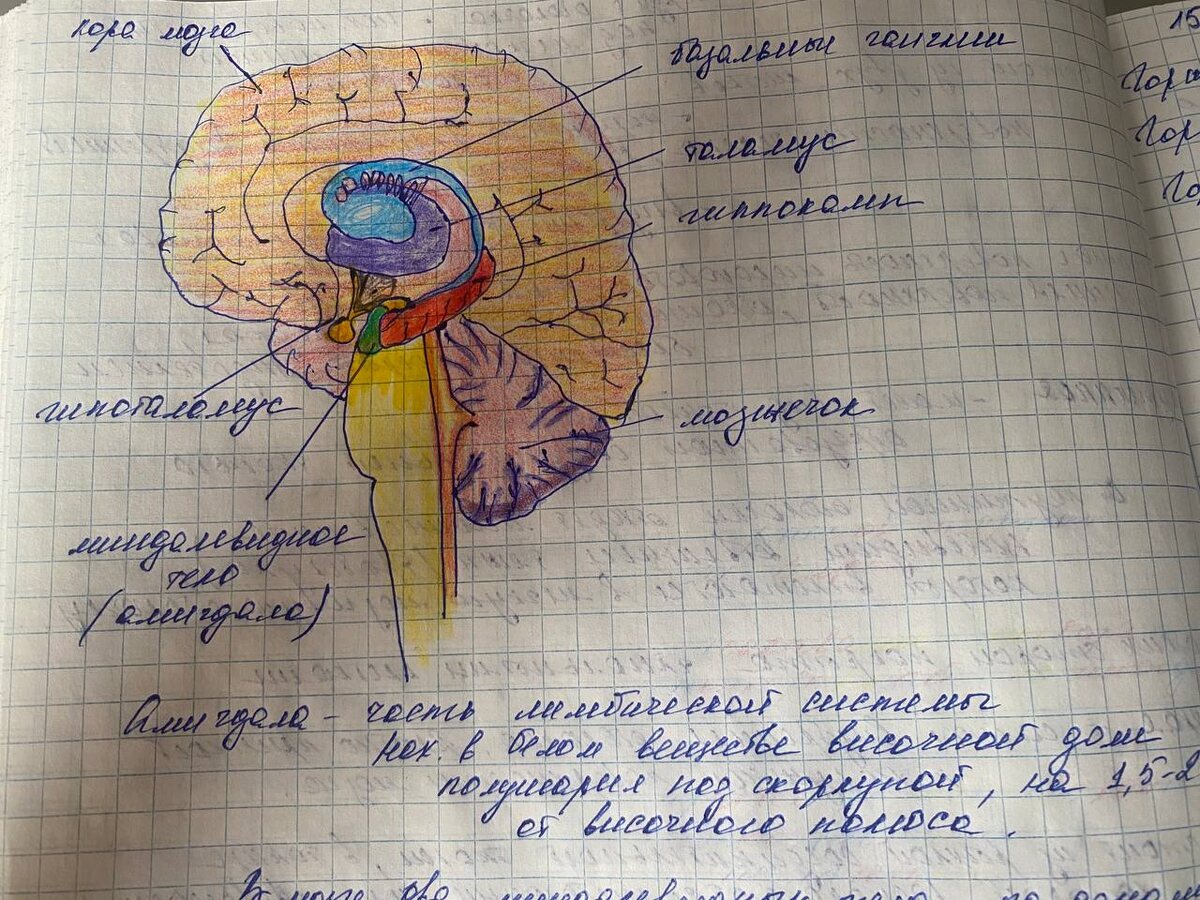 кора мозга
базальные ганглии
таламус
гиппокамп
гипоталамус
мозжечок
миндалевидное
тело
(амигдала)
Амигдала - часть лимбической системы
нах. в белом веществе височной доли
полушария под скорлупой, на 1,5-2
от височного полюса.
В мозге два миндалевидных тела
15
Гор
Гор
Го